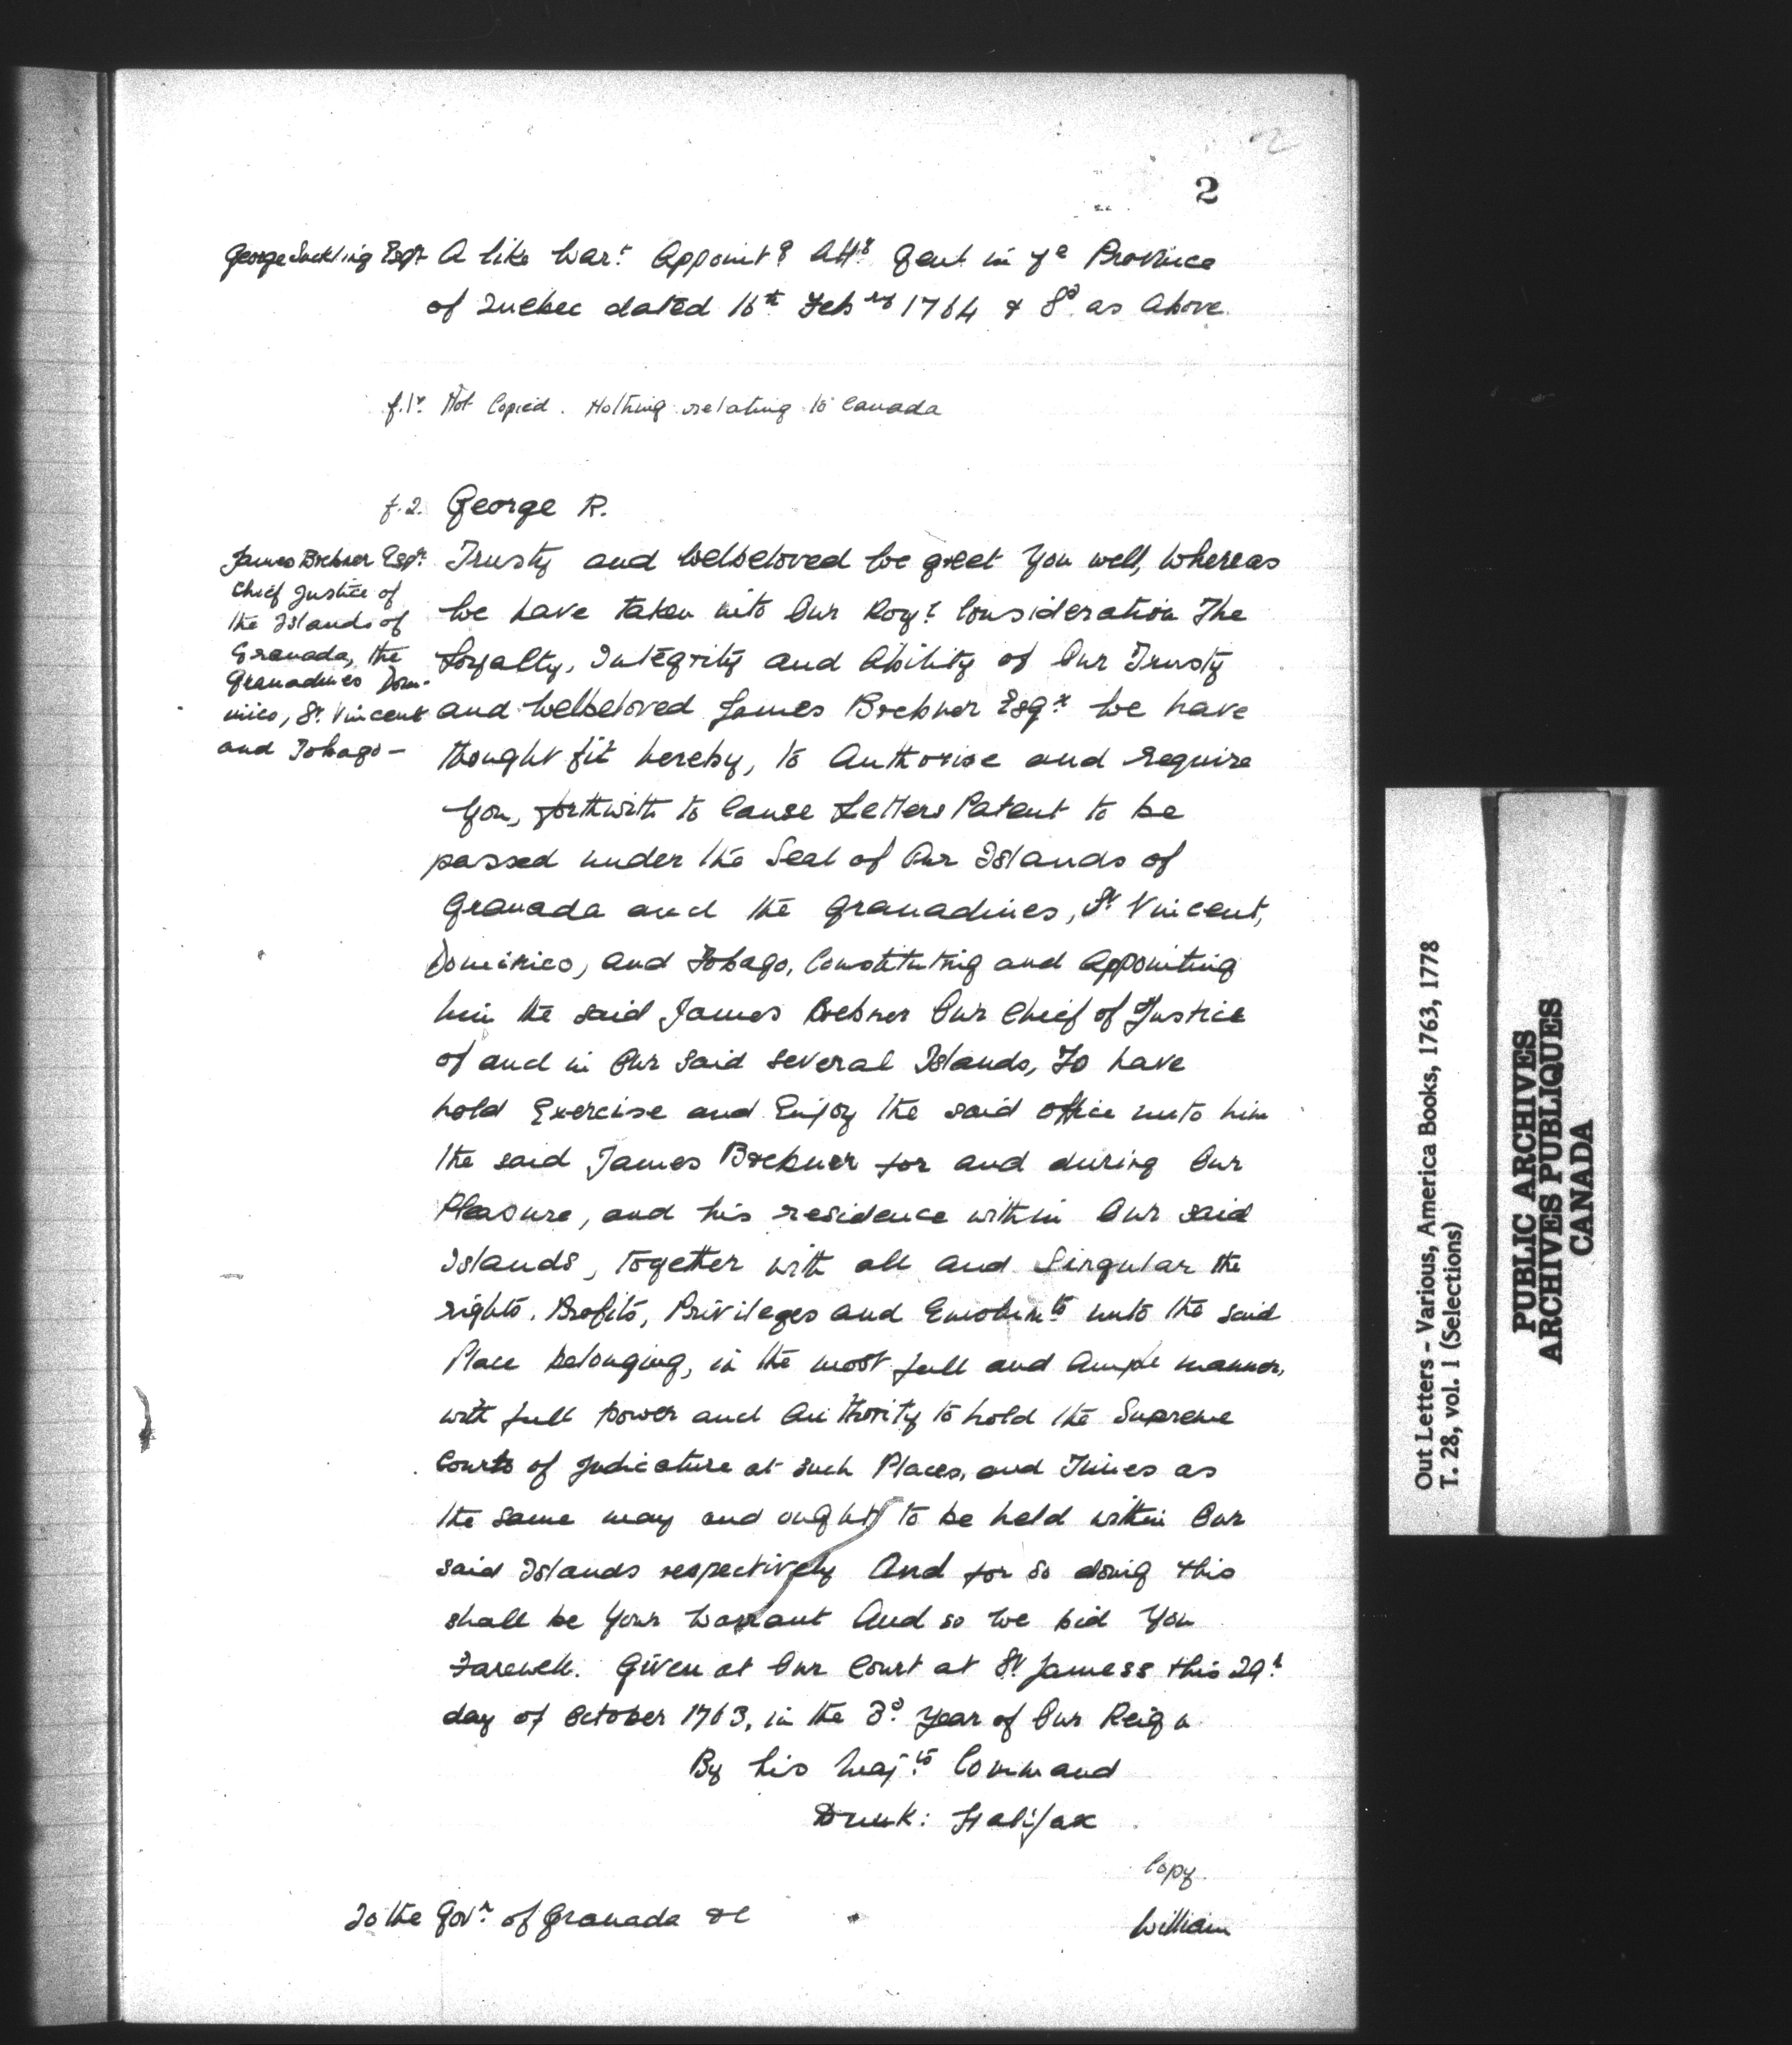 2
2
George Suckling Esqr A like Wart Appointg Atty Genl in ye Province
of Quebec dated 16th Febry 1764 & Sd as Above.
f.1v. Not Copied. Nothing relating to Canada
f.2. George R.
James Brebner Esqr.
Chief Justice of
the Islands of
Granada, the
Granadines Dom-
inico, St. Vincent
and Tobago —
Trusty and Welbeloved We greet You well, Whereas
We have taken into Our Royl Consideration The
Loyalty, Integrity and Ability of Our Trusty
and Welbeloved James Brebner Esqr We have
thought fit hereby, to Authorise and require
You, forthwith to Cause Letters Patent to be
passed under the Seal of Our Islands of
Granada and the Granadines, St Vincent,
Dominico, and Tobago, Constituting and Appointing
him the said James Brebner Our Chief of Justice
of and in Our said several Islands, To have
hold Exercise and Enjoy the said Office unto him
the said James Brebner for and during Our
Pleasure, and his residence within Our said
Islands, together with all and Singular the
rights, Profits, Privileges and Emolumts unto the said
Place belonging, in the most full and Ample manner,
with full power and Authority to hold the Supreme
Courts of Judicature at such Places, and Times as
the same may and ought to be held within Our
said Islands respectively And for so doing this
shall be Your Warrant And so We bid You
Farewell. Given at Our Court at St Jamess this 29t
day of October 1763, in the 3d Year of Our Reign
By his Majts Command
Dunk: Halifax
Copy.
To the Govr. of Granada &c
William
Out Letters - Various, America Books, 1763, 1778
T. 28, vol. 1 (Selections)
PUBLIC ARCHIVES
ARCHIVES PUBLIQUES
CANADA